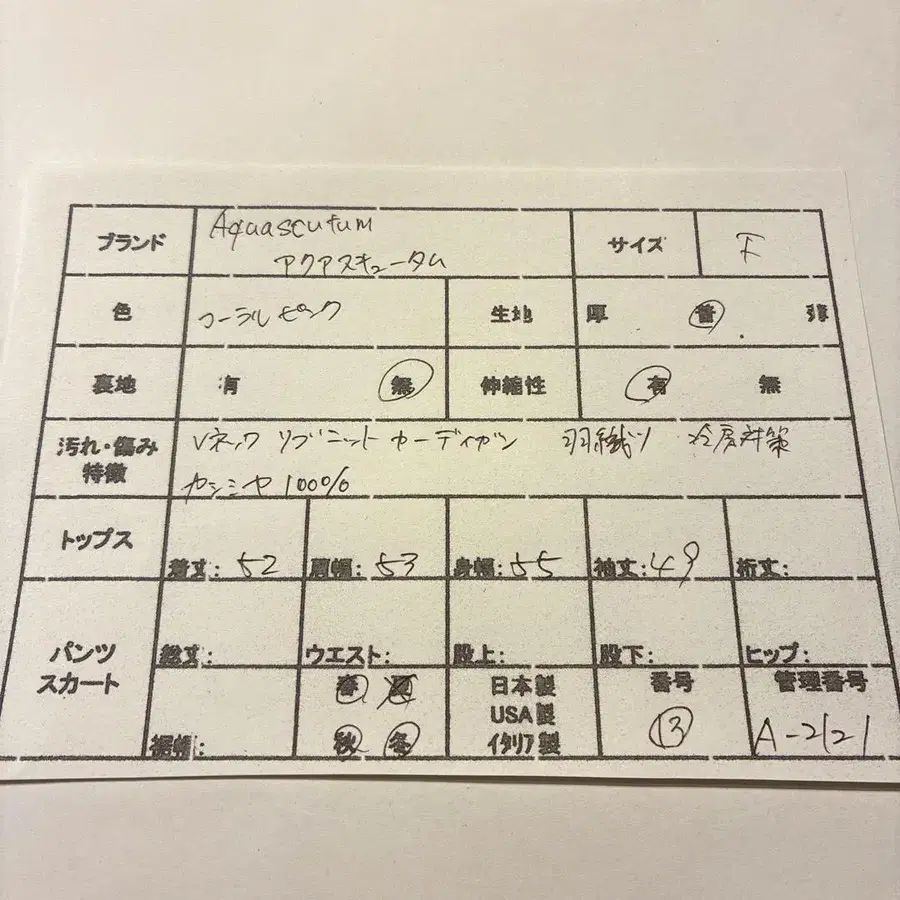 ブランド Aquascutum サイズ F
アクアスキュータム
色 コーラルピンク 生地 厚 普 薄
裏地 有 無 伸縮性 有 無
汚れ・傷み Vネック リブニット カーディガン 羽織り 冷房対策
特徴 カシミヤ 100%
トップス 着丈: 52 肩幅: 53 身幅: 55 袖丈: 49 裄丈:
パンツ 総丈: ウエスト: 股上: 股下: ヒップ:
スカート 春 夏 日本製 番号 管理番号
USA製
裾幅: 秋 冬 イタリア製 13 A-2121